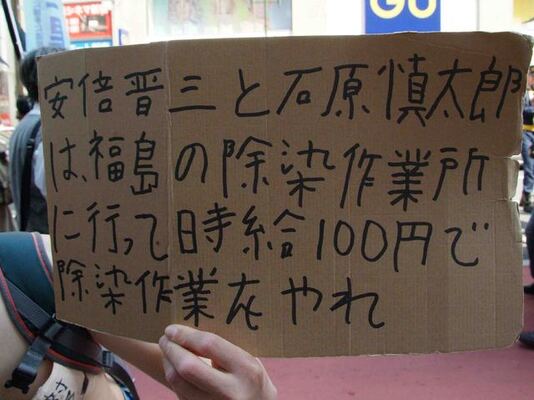 安倍晋三と石原慎太郎
は、福島の除染作業所
に行って時給100円で
除染作業をやれ
GU